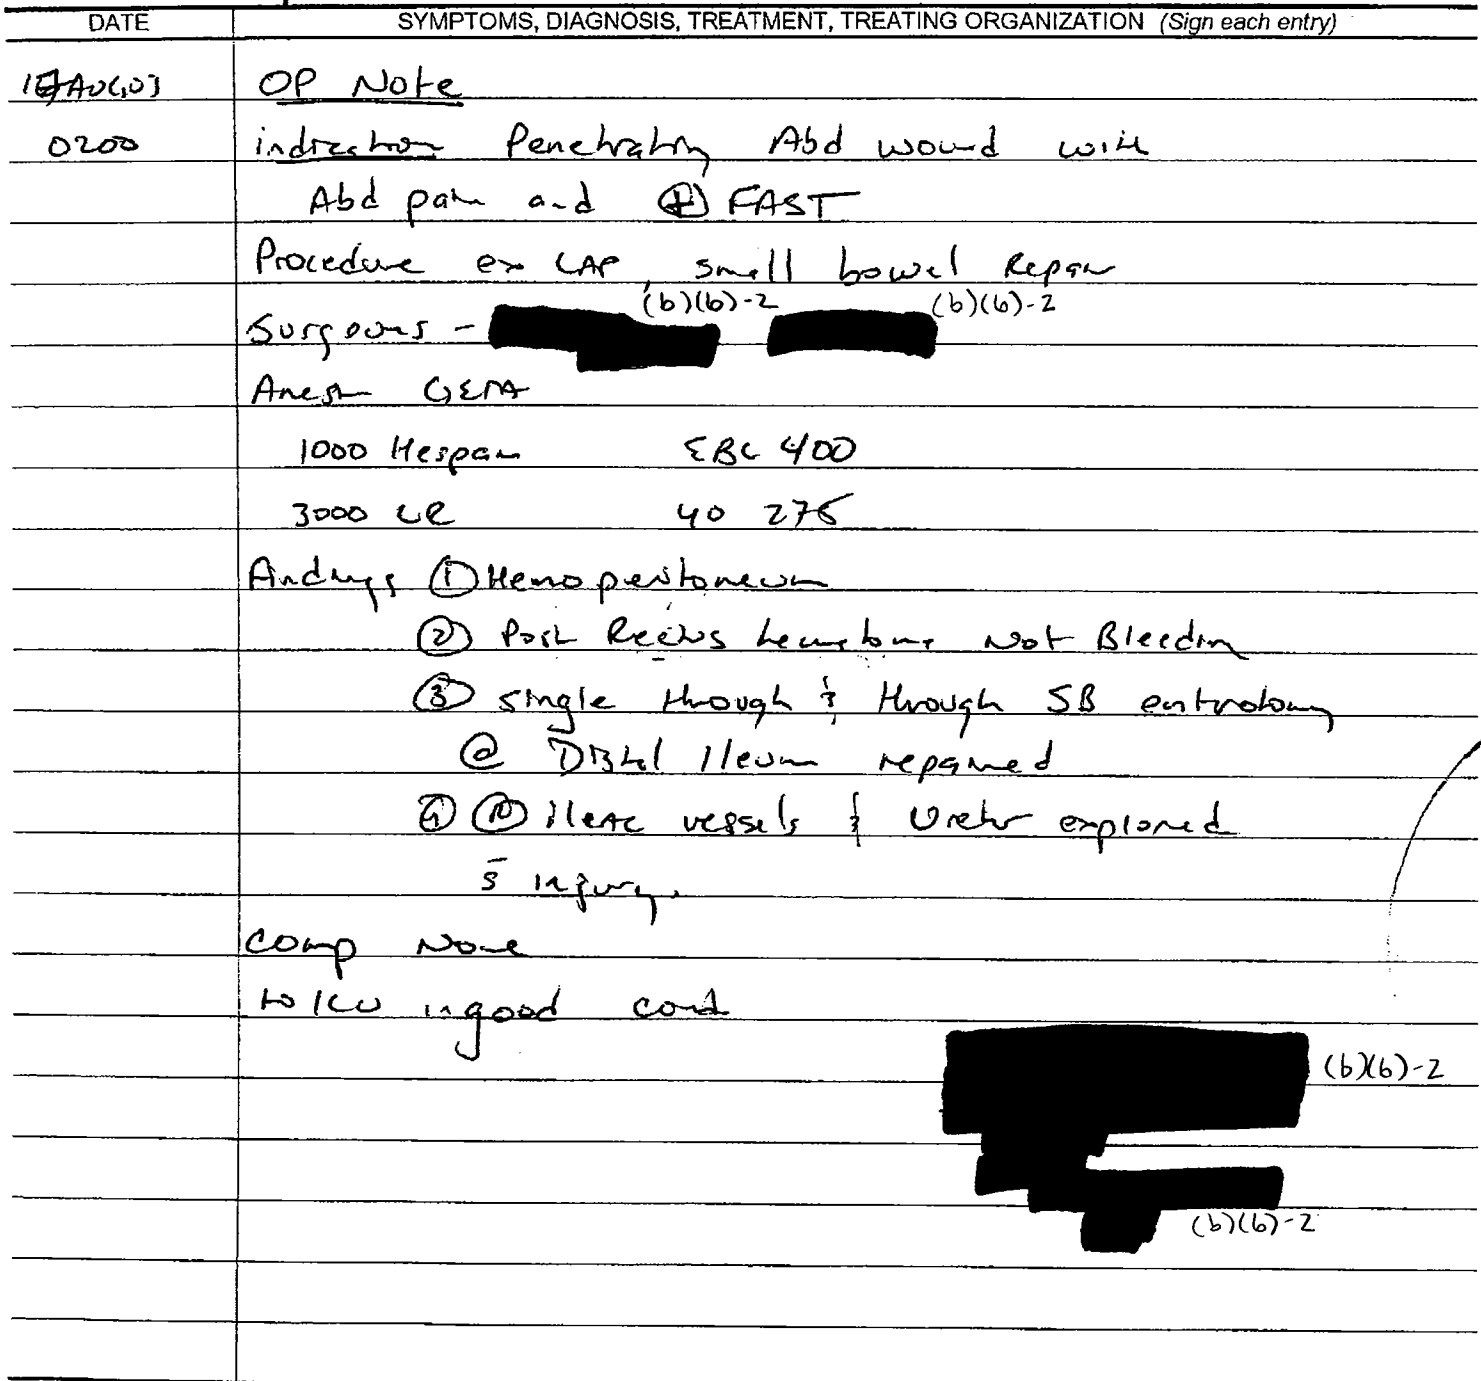 DATE SYMPTOMS, DIAGNOSIS, TREATMENT, TREATING ORGANIZATION (Sign each entry)
OP Note
0200 indication Penetrating Abd wound with
Abd pain and (+) FAST
Procedure ex LAP, small bowel Repair
(b)(6)-2 (b)(6)-2
Surgeons -
Anesth GETA
1000 Hespan EBL 400
3000 LR UO 275
Findings ① Hemoperitoneum
② Post Rectus hematoma Not Bleeding
③ single through & through SB enterotomy
@ Distal Ileum repaired
④ Ⓡ iliac vessels & Ureter explored
s̄ injury.
Comp None
to ICU in good cond
(b)(6)-2
(b)(6)-2